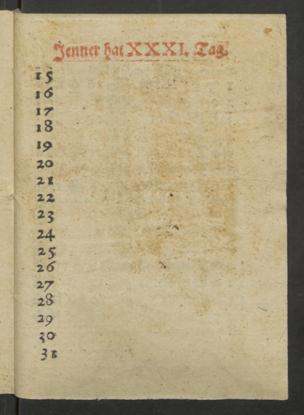 Jenner hat XXXI. Tag.
15
16
17
18
19
20
21
22
23
24
25
26
27
28
29
30
31